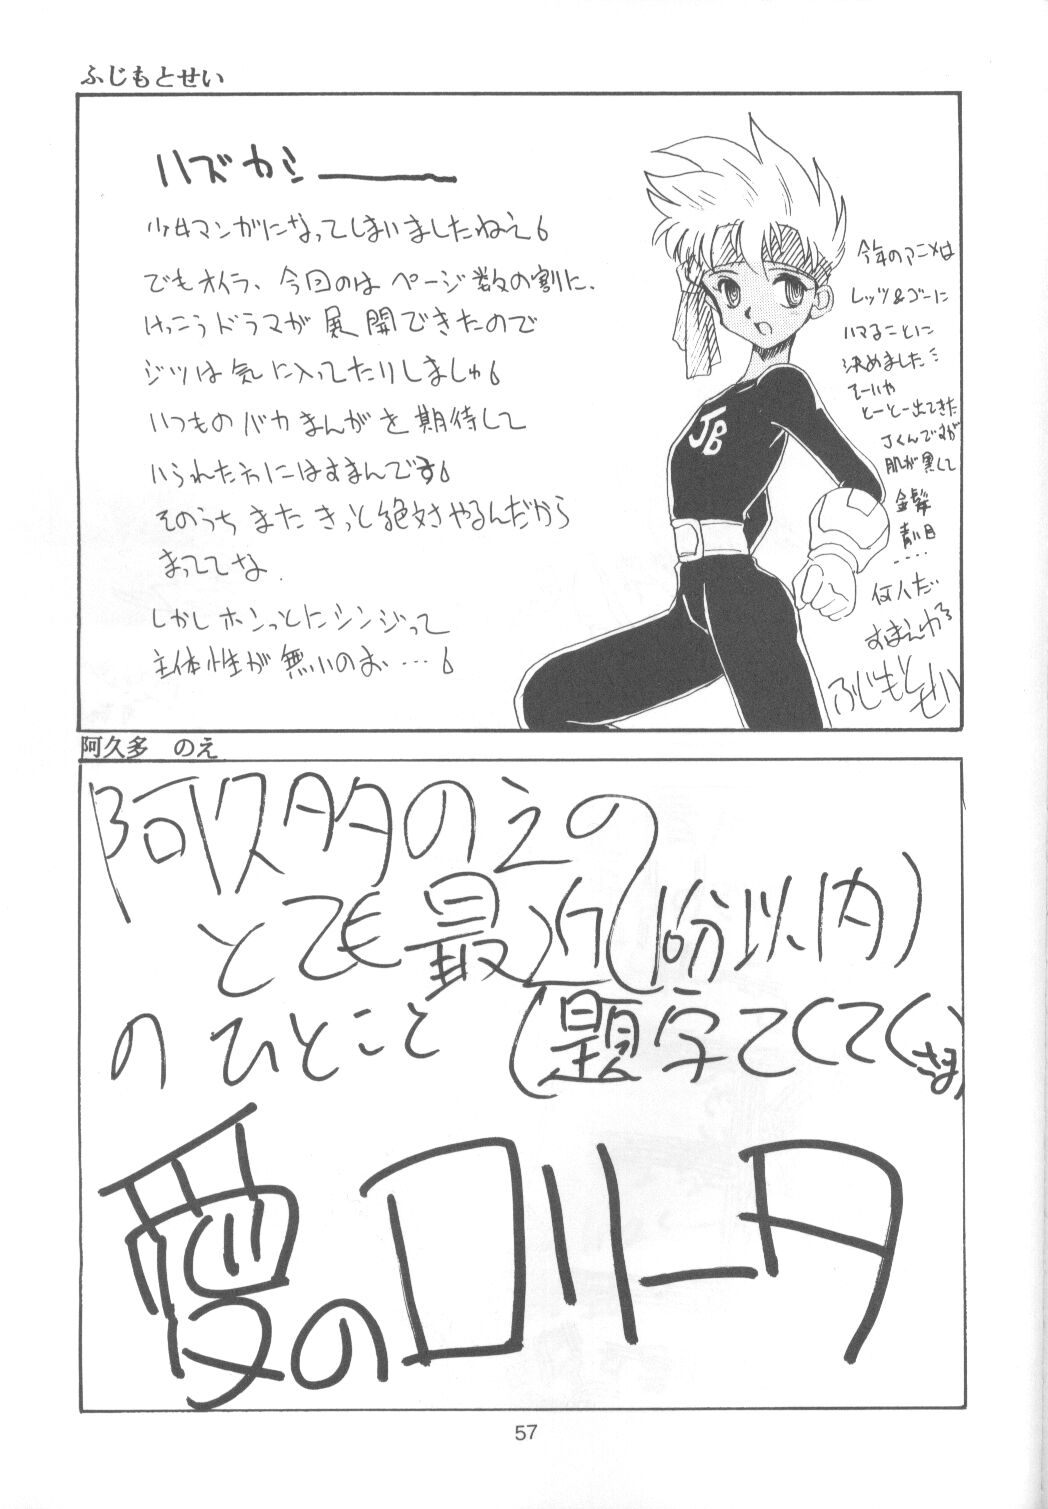 ふじもとせい
ハズカシ———
少女マンガになってしまいましたねえ
でもオイラ、今回のは ページ数の割に、
けっこうドラマが 展開できたので
ジツは気に入ってたりしましゅ
いつものバカまんがを期待して
いられた方にはすまんです
そのうち またきっと絶対やるんだから
まっててな
しかしホンっとにシンジって
主体性が無いのお…
JB
今年のアニメは
レッツ&ゴーに
ハマることに
決めました
てーいや
とーとー出てきた
Jくんですが
肌が黒くて
金髪
青い目
....
何人だ
すまんかろ
ふじもとせい
阿久多 のえ
阿久多のえの
とても最近(10分以内)
のひとこと(題字てくてくさま)
愛のロリータ
57